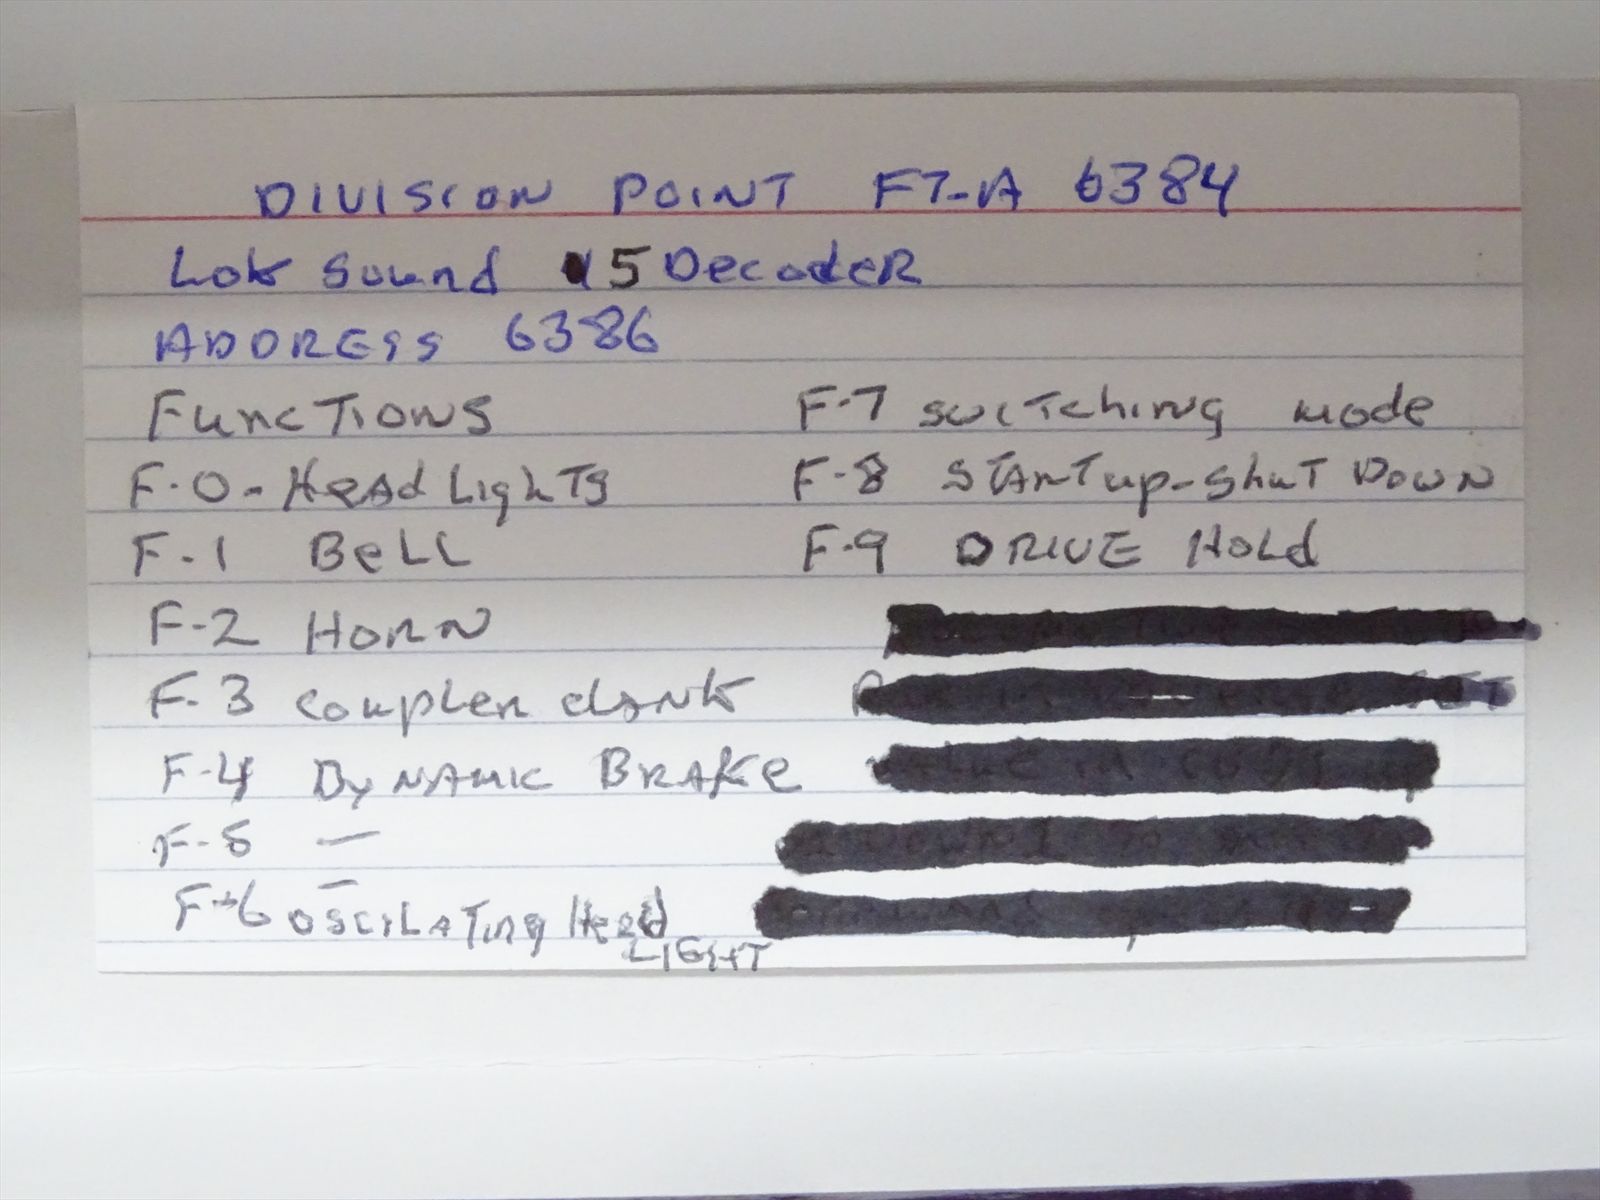 DIVISION POINT F7-A 6384
Lok Sound 5 Decoder
ADDRESS 6386
Functions
F-0-Head Lights
F-1 Bell
F-2 HORN
F-3 coupler clank
F-4 Dynamic BRAKe
F-5 —
F-6 OSCILATing Head
LIGHT
F-7 switching mode
F-8 STArT up-Shut Down
F-9 DRIVE Hold